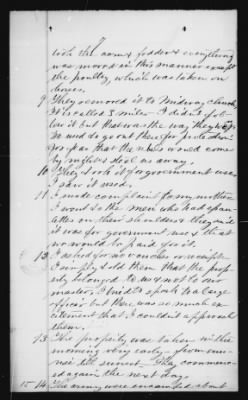 took the corn & fodder & everything
was moved in this manner except
the poultry, which was taken on
horses.
9 They removed it to Midway church
It is called 3 miles. I didn't fol-
low it but that was the way they
so
far that the news would come
away.
10 They took it for government use
I saw it used.
11 I made complaint for my mother
I went to the men who had
letters on their shoulders they said
it was for government uses & that
we would be paid for it.
12 I asked for no voucher or receipt
I simply told them that the prop-
erty belonged to us & not to our
master. I tried to speak to a large
officer but there was so much ex-
citement that I couldn't approach
them.
13 The property was taken in the
morning very early from sun-
rise till sunset. They commenc-
ed again the next day.
14 The army were encamped about